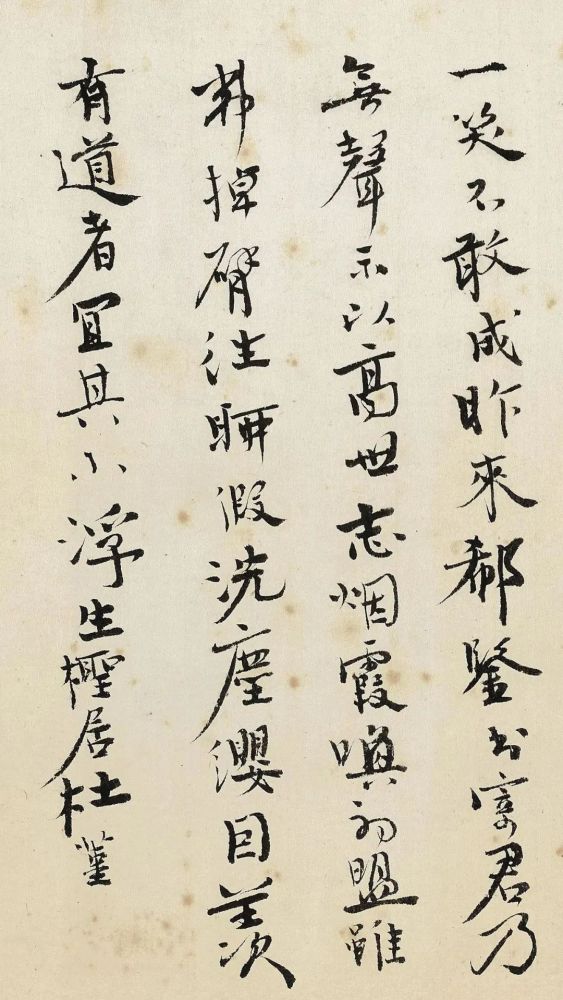 一笑不敢成昨來郗鑒書寄君乃
無聲示以高世志烟霞嗔初盟雖
弗掉臂往聊假洗塵纓因羨
有道者宜其小浮生檉居杜堇